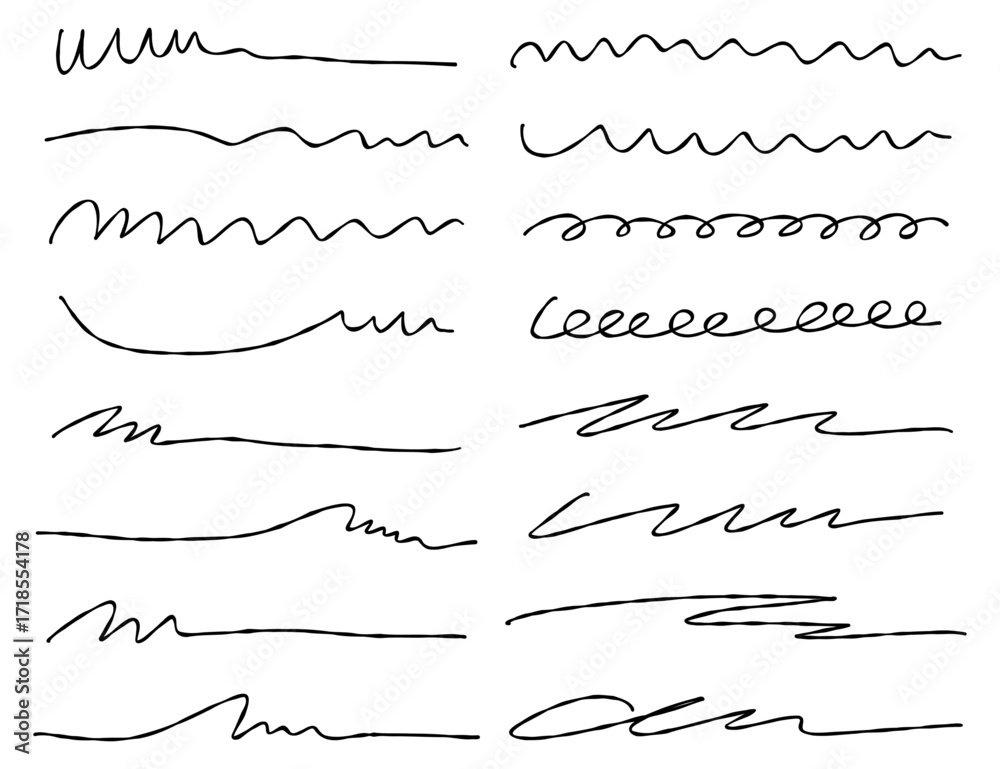 Adobe Stock | #1718554178